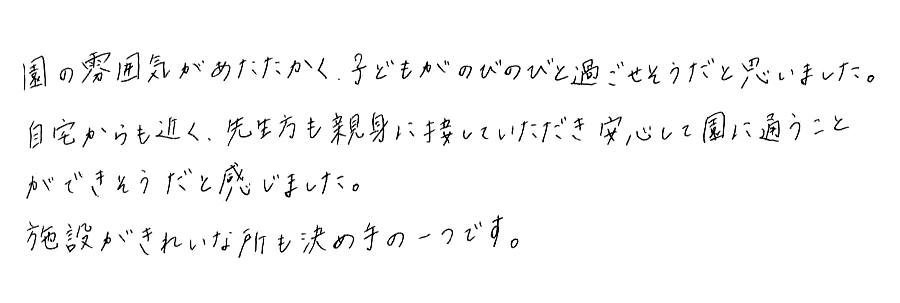 園の雰囲気があたたかく、子どもがのびのびと過ごせそうだと思いました。
自宅からも近く、先生方も親身に接していただき安心して園に通うこと
ができそうだと感じました。
施設がきれいな所も決め手の一つです。